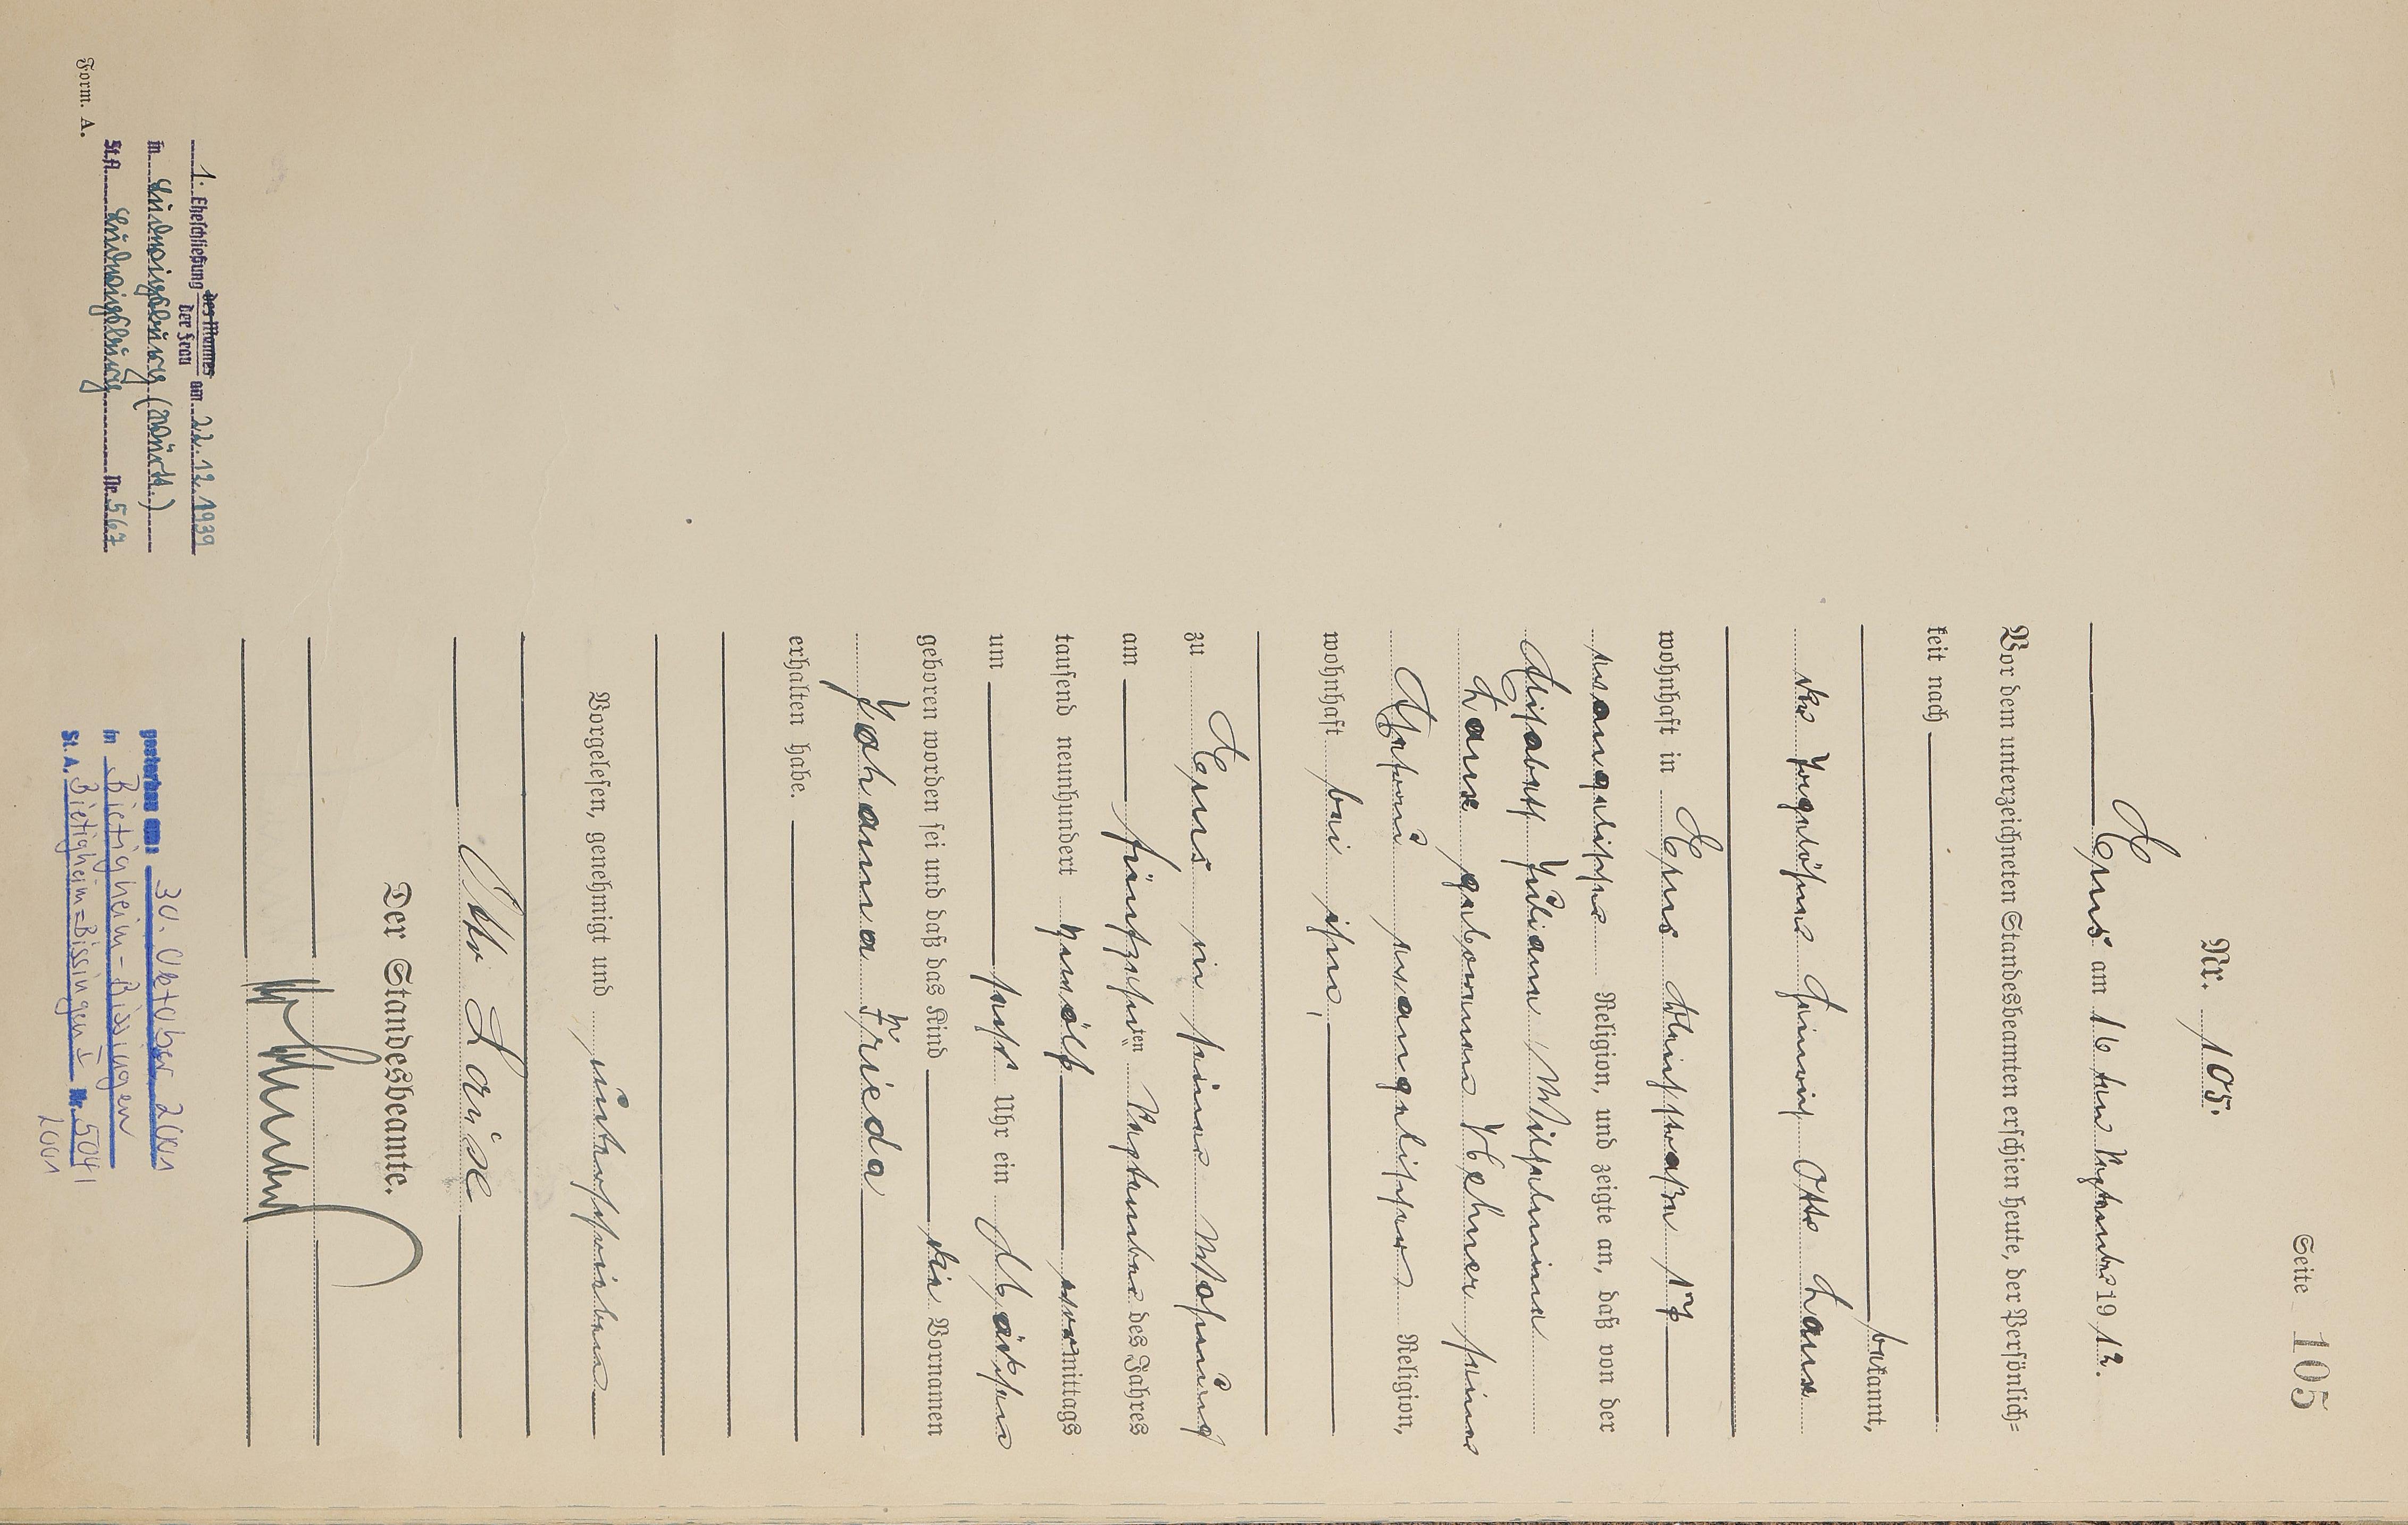 Seite 105
Nr. 105.
Ems am 16ten September 1912.
Vor dem unterzeichneten Standesbeamten erschien heute, der Persönlich=
keit nach
bekannt,
der Tagelöhner Heinrich Otto Laux
wohnhaft in Ems Bleichstraße 17
evangelischer Religion, und zeigte an, daß von der
Elisabeth Juliane Wilhelmine
Laux geborenen seiner
Ehefrau evangelischer Religion,
wohnhaft bei ihm,
zu Ems in seiner Wohnung
am fünfzehnten September des Jahres
tausend neunhundert zwölf vormittags
um sechs Uhr ein Mädchen
geboren worden sei und daß das Kind die Vornamen
Johanna Frieda
erhalten habe.
Vorgelesen, genehmigt und unterschrieben
Otto Laux
Der Standesbeamte.
1. Eheschließung des Mannes der Frau am 22.12.1939
in Ludwigsburg (Württ.)
St.A. Ludwigsburg Nr. 567
Form. A.
gestorben am: 30. Oktober 2001
in Bietigheim-Bissingen
St. A. Bietigheim=Bissingen I Nr. 504/
2001